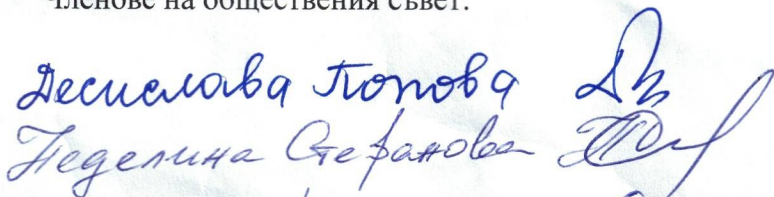 Членове на обществения съвет:
Десислава Попова
Неделина Стефанова